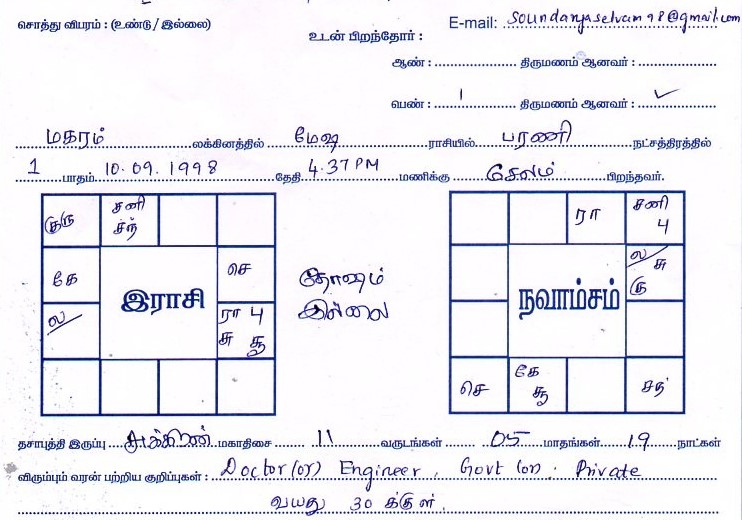 சொத்து விபரம் : (உண்டு / இல்லை)
E-mail: soundaryaselvam98@gmail.com
உடன் பிறந்தோர் :
ஆண் : திருமணம் ஆனவர் :
பெண் : 1 திருமணம் ஆனவர் : ✓
மகரம் லக்கினத்தில் மேஷ ராசியில் பரணி நட்சத்திரத்தில்
1 பாதம் 10.09.1998 தேதி 4.37 PM மணிக்கு சேலம் பிறந்தவர்.
குரு சனி சந்
கே செ
இராசி
ல ரா பு சு சூ
தோஷம் இல்லை
ரா சனி பு
ல சு குரு
நவாம்சம்
செ கே சூ சந்
தசாபுத்தி இருப்பு சுக்கிரன் மகாதிசை 11 வருடங்கள் 05 மாதங்கள் 19 நாட்கள்
விரும்பும் வரன் பற்றிய குறிப்புகள் : Doctor (or) Engineer, Govt (or) Private
வயது 30 க்குள்.